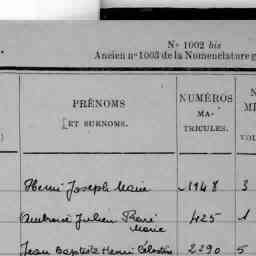 N° 1002 bis
Ancien n° 1003 de la Nomenclature g
PRÉNOMS
ET SURNOMS.
NUMÉROS
MA-
TRICULES.
N
M
VOL
Henri Joseph Marie 1948 3
Ambroise Julien René 425 1
Marie
Jean Baptiste Henri Célestin 2290 5